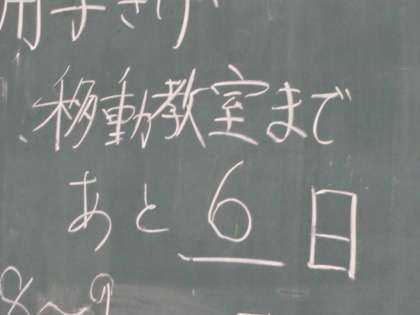 移動教室まで
あと 6 日
8〜9